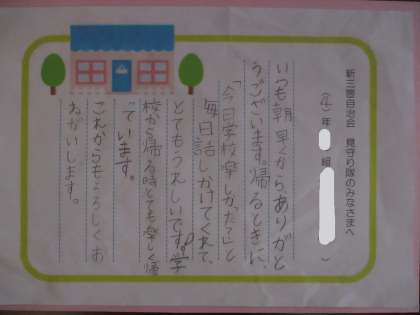 新三豊自治会 見守り隊のみなさまへ
(4)年 組( )
いつも朝早くから、ありがと
うございます。帰るときに、
「今日学校楽しかた?」と
毎日話しかけてくれて、
とてもうれしいです。学
校から帰る時とても楽しく帰
ています。
これからもよろしくお
ねがいします。